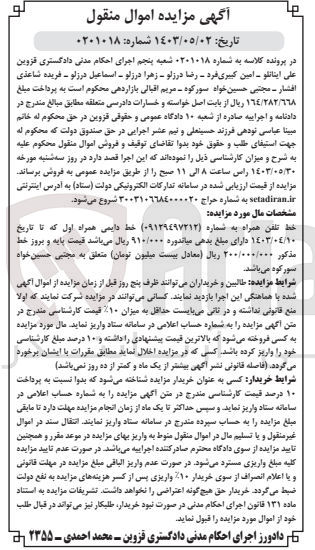 آگهی مزایده اموال منقول
تاریخ: ۱۴۰۳/۰۵/۰۲ شماره: ۰۲۰۱۰۱۸
در پرونده کلاسه به شماره ۰۲۰۱۰۱۸ شعبه پنجم اجرای احکام مدنی دادگستری قزوین
علی ایتانلو ـ امین کبیری‌فرد ـ رضا درزلو ـ زهرا درزلو ـ اسماعیل درزلو ـ فریده شاعذی
افشار ـ مجتبی حسین‌خواه سورکوه ـ مریم اقبالی بازاردهی محکوم است به پرداخت مبلغ
۱۶۴/۲۸۲/۶۶۸ ریال از بابت اصل خواسته و خسارات دادرسی متعلقه مطابق مبالغ مندرج در
دادنامه و اجراییه صادره از شعبه ۱۰ دادگاه عمومی و حقوقی قزوین در حق محکوم له خانم
مینا عباسی نودهی فرزند حسینعلی و نیم عشر اجرایی در حق صندوق دولت که محکوم له
جهت استیفای طلب و حقوق خود بدوا تقاضای توقیف و فروش اموال منقول محکوم علیه
به شرح و میزان کارشناسی ذیل را نموده‌اند که این اجرا قصد دارد در روز سه‌شنبه مورخه
۱۴۰۳/۰۵/۳۰ راس ساعت ۸ الی ۱۱ صبح را از طریق مزایده عمومی به فروش برساند.
مزایده از قیمت ارزیابی شده در سامانه تدارکات الکترونیکی دولت (ستاد) به آدرس اینترنتی
setadiran.ir به شماره حراج ۳۰۰۳۱۰۶۶۸۴۰۰۰۰۲۰ شروع می‌شود.
مشخصات مال مورد مزایده:
خط تلفن همراه به شماره (۰۹۱۲۹۴۹۷۲۱۲) خط دایمی همراه اول که تا تاریخ
۱۴۰۳/۰۴/۱۰ دارای مبلغ بدهی میاندوره ۹۱۰/۰۰۰ ریال می‌باشد قیمت پایه و بروز خط
مذکور ۲۰۰/۰۰۰/۰۰۰ ریال (معادل بیست میلیون تومان) متعلق به مجتبی حسین‌خواه
سورکوه می‌باشد.
شرایط مزایده: طالبین و خریداران می‌توانند ظرف پنج روز قبل از زمان مزایده از اموال آگهی
شده با هماهنگی این اجرا بازدید نمایند. کسانی می‌توانند در مزایده شرکت نمایند که اولا
منع قانونی نداشته و در ثانی می‌بایست حداقل به میزان ۱۰٪ قیمت کارشناسی مندرج در
متن آگهی مزایده را به شماره حساب اعلامی در سامانه ستاد واریز نماید. مال مورد مزایده
به کسی فروخته می‌شود که بالاترین قیمت پیشنهادی را داشته و ۱۰ درصد مبلغ کارشناسی
خود را واریز کرده باشد. کسی که در مزایده اخلال نماید مطابق مقررات با ایشان برخورد
می‌گردد. (فاصله قانونی نشر آگهی بیشتر از یک ماه و کمتر از ده روز نمی‌باشد)
شرایط خریدار: کسی به عنوان خریدار مزایده شناخته می‌شود که بدوا نسبت به پرداخت
۱۰ درصد قیمت کارشناسی مندرج در متن آگهی مزایده را به شماره حساب اعلامی در
سامانه ستاد واریز نماید. و سپس حداکثر تا یک ماه از زمان انجام مزایده مهلت دارد تا مابقی
مبلغ مزایده را به حساب سپرده مندرج در سامانه ستاد واریز نمایند. انتقال سند در اموال
غیرمنقول و یا تسلیم مال در اموال منقول منوط به واریز بهای مزایده در موعد مقرر و همچنین
تایید مزایده از سوی دادگاه محترم صادرکننده اجراییه می‌باشد. در صورت عدم تایید مزایده
کلیه مبالغ واریزی مسترد می‌شود. در صورت عدم واریز الباقی مبلغ مزایده در مهلت قانونی
و یا اعلام انصراف از سوی خریدار ۱۰٪ واریزی پس از کسر هزینه‌های مزایده به نفع دولت
ضبط می‌گردد. خریدار حق هیچ‌گونه اعتراضی را نخواهد داشت. تشریفات مزایده به استناد
ماده ۱۳۱ قانون اجرای احکام مدنی در صورت نبود خریدار، طلبکار نیز می‌تواند در قبال طلب
خود از اموال مورد مزایده را قبول نماید.
دادورز اجرای احکام مدنی دادگستری قزوین ـ محمد احمدی ـ ۲۳۵۵